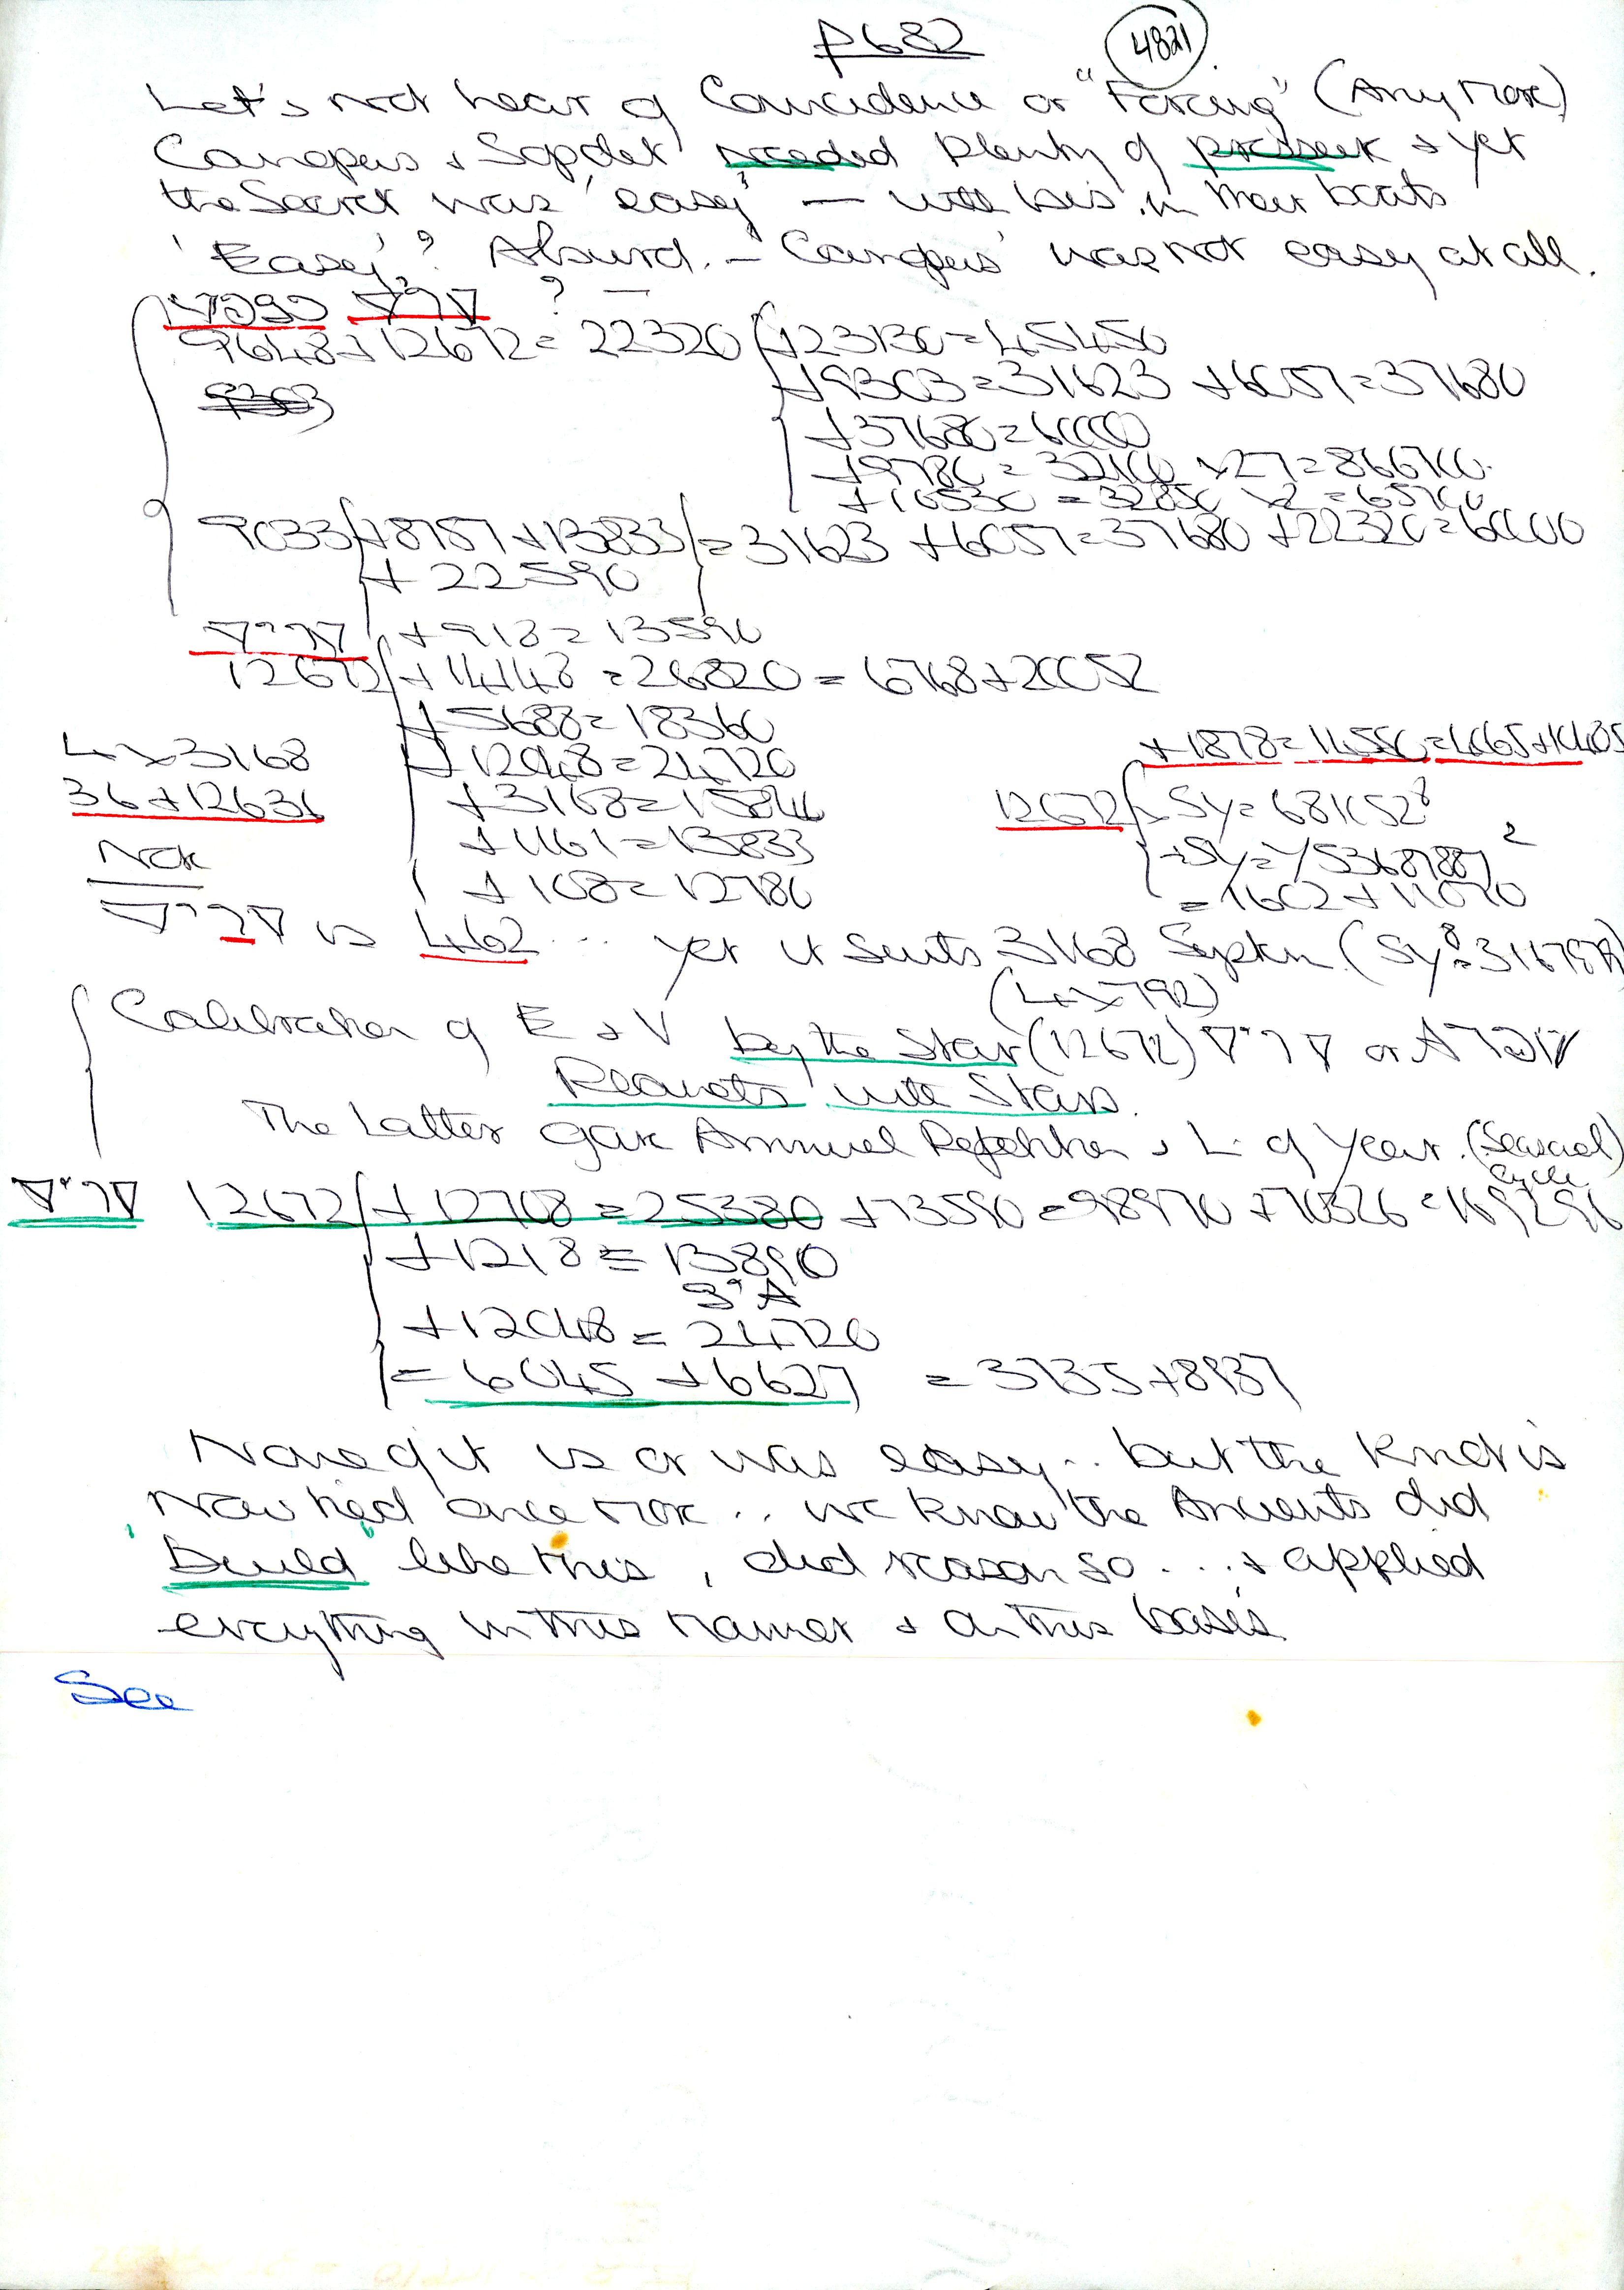 p682
4821
Let's not hear of Coincidence or "Forcing" (Any More)
Canopus + Sopdet needed plenty of & yet
the Secret was 'easy' — with in their boats
'Easy'? Absurd. — 'Canopus' was not easy at all.
?
9648 + 12672 = 22320 + 23130 = 45450
9303
+ 9303 = 31623 + 6057 = 37680
+ 37680 = 60000
+ 9780 = 32100 x 27 = 866700
+ 10530 = 32850 x 2 = 65700
9033 + 8757 + 13833 = 31623 + 6057 = 37680 + 22320 = 60000
+ 22590
+ 918 = 13590
12672 + 14148 = 26820 = 6768 + 20052
+ 5688 = 18360
4 x 3168
+ 12048 = 24720
+ 1878 = 14550 = 4065 + 10485
36 + 12636
+ 3168 = 15840
12672 x SY = 681052⁸
+ 1161 = 13833
Nok
+ 108 = 12780
= 1602 + 11070
is 462 ... yet it suits 3168
(4 x 792)
Calibration of E + V by the Star (12672) or
Planets with Stars.
The Latter gave Annual Repetition & L. of Year. (Seasonal)
Cycle
12672 + 12708 = 25380 + 73590 = 98970 + 70326 = 169296
+ 1218 = 13890
+ 12048 = 24720
= 6045 + 6627 = 3735 + 8937
None of it is or was easy .. but the Knot is
Now tied once more .. we know the Ancients did
'build' like this, did reason so ... & applied
everything in this manner & on this basis.
See